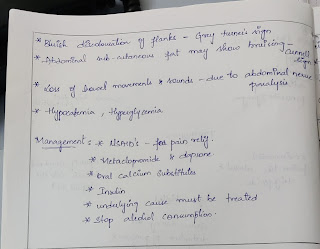 * Bluish discolouration of flanks - Gray turner's sign
* Abdominal sub-cutaneous fat may show bruicing - Cunnell sign
* Loss of bowel movements & sounds - due to abdominal nerve paralysis
* Hypocalemia, Hyperglycemia.
Managements * NSAID's - for pain relif.
* Metaclopromide & dopsone.
* Oral calcium Substitutes
* Insulin
* underlying cause must be treated
* Stop alcohol consumption.